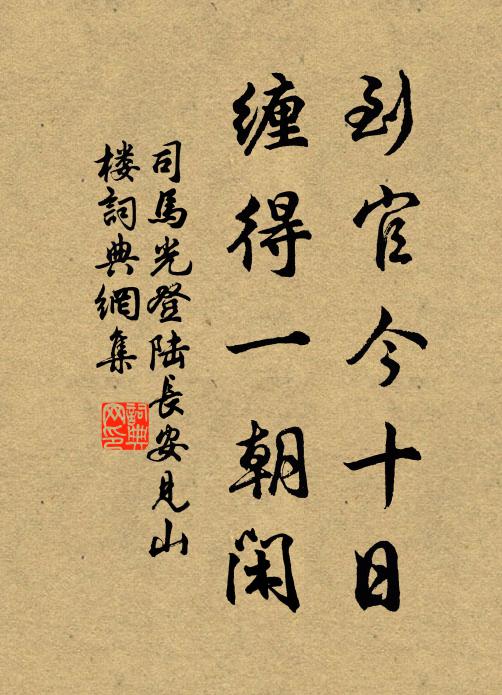 到官今十日
缠得一朝闲
司馬光登陆長安見山
楼詞典網集
詞典
网印